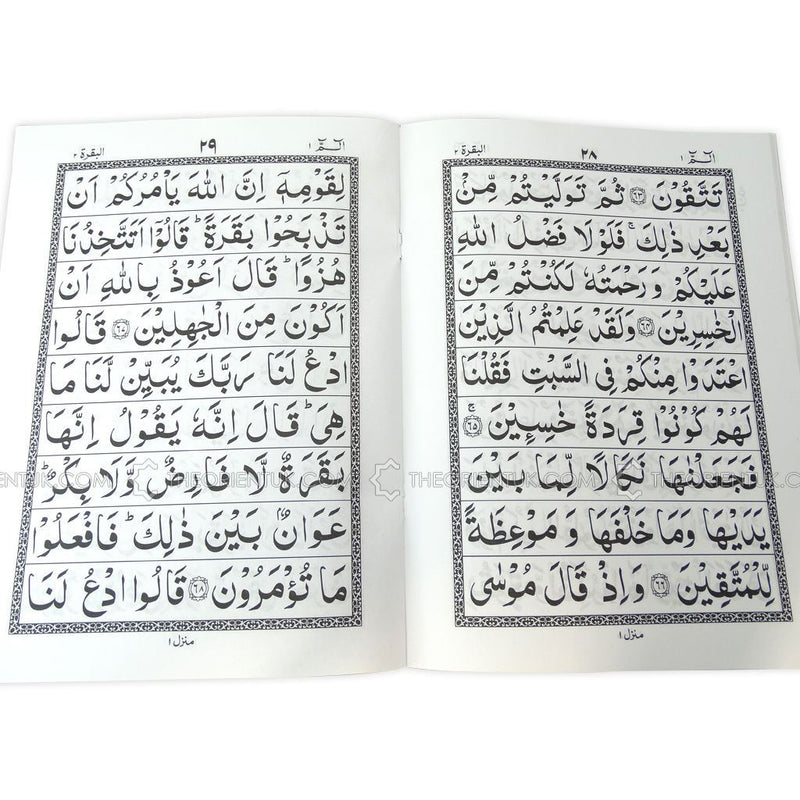 البقرة ٢
٢٨
الٓمّٓ ١
تَتَّقُوْنَ ﴿٦٣﴾ ثُمَّ تَوَلَّيْتُمْ مِّنْۢ
بَعْدِ ذٰلِكَ ۚ فَلَوْلَا فَضْلُ اللّٰهِ
عَلَيْكُمْ وَرَحْمَتُهٗ لَكُنْتُمْ مِّنَ
الْخٰسِرِيْنَ ﴿٦٤﴾ وَلَقَدْ عَلِمْتُمُ الَّذِيْنَ
اعْتَدَوْا مِنْكُمْ فِى السَّبْتِ فَقُلْنَا
لَهُمْ كُوْنُوْا قِرَدَةً خٰسِئِيْنَ ﴿٦٥﴾ ۚ
فَجَعَلْنٰهَا نَكَالًا لِّمَا بَيْنَ
يَدَيْهَا وَمَا خَلْفَهَا وَ مَوْعِظَةً
لِّلْمُتَّقِيْنَ ﴿٦٦﴾ وَاِذْ قَالَ مُوْسٰى
منزل ١
البقرة ٢
٢٩
الٓمّٓ ١
لِقَوْمِهٖٓ اِنَّ اللّٰهَ يَاْمُرُكُمْ اَنْ
تَذْبَحُوْا بَقَرَةً ؕ قَالُوْٓا اَتَتَّخِذُنَا
هُزُوًا ؕ قَالَ اَعُوْذُ بِاللّٰهِ اَنْ
اَكُوْنَ مِنَ الْجٰهِلِيْنَ ﴿٦٧﴾ قَالُوا
ادْعُ لَنَا رَبَّكَ يُبَيِّنْ لَّنَا مَا
هِىَ ؕ قَالَ اِنَّهٗ يَقُوْلُ اِنَّهَا
بَقَرَةٌ لَّا فَارِضٌ وَّلَا بِكْرٌ ؕ
عَوَانٌۢ بَيْنَ ذٰلِكَ ؕ فَافْعَلُوْا
مَا تُؤْمَرُوْنَ ﴿٦٨﴾ قَالُوا ادْعُ لَنَا
منزل ١
THEORIENTUK.COM
THEORIENTUK.COM